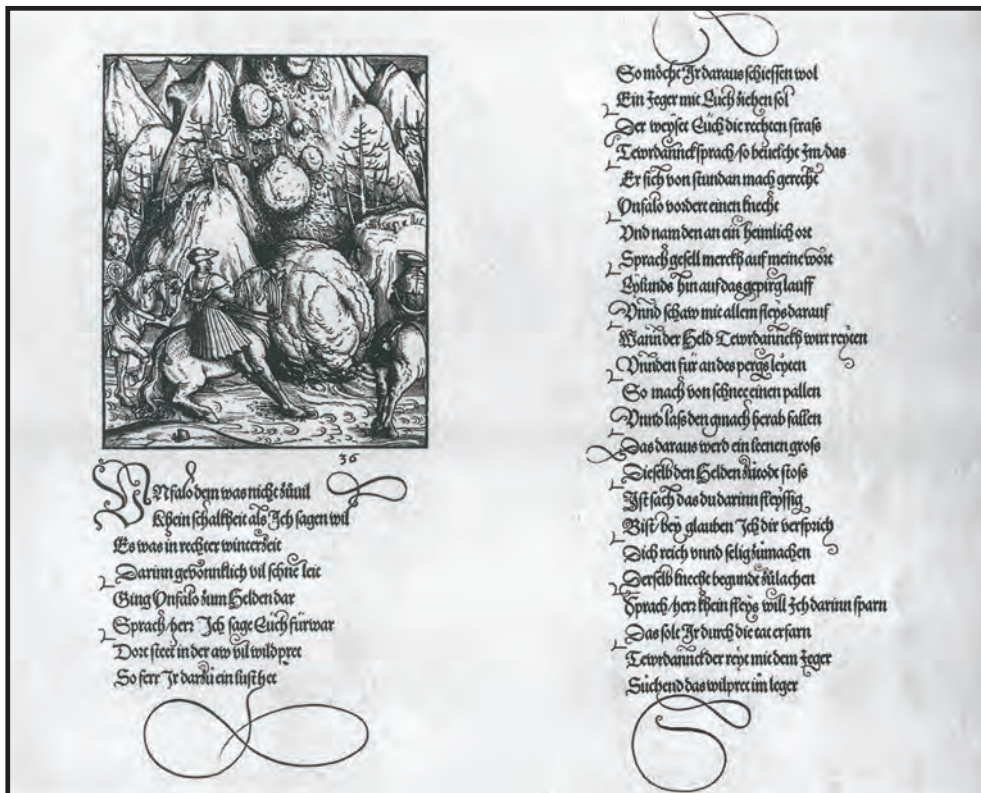 36
VNfalo dem was nicht zůuil
Khein schalkheit als Ich sagen wil
Es was in rechter winterzeit
Darinn gewonnklich vil schne leit
Ging Vnfalo zum Helden dar
Sprach / herr Ich sage Eůch fürwar
Dort steet in der aw vil wildpret
So ferr Ir darzů ein lust het
So mocht Ir daraus schiessen wol
Ein Jeger mit Eůch ziehen sol
Der weyset Eůch die rechten strass
Tewrdannckh sprach / so beuelcht Im / das
Er sich von stundan mach gerecht
Vnfalo vordert einen knecht
Vnd nam den an ein heimlich ort
Sprach gesell merckh auf meine wort
Eylunds hin auf das gepirg lauff
Vnnd schaw mit allem fleys darauf
Wann der Held Tewrdannckh wirt reyten
Vnnden für an des pergs leyten
So mach von schnee einen pallen
Vnnd lass den gmach herab fallen
Das daraus werd ein leenen gross
Dieselb den Helden zůtode stoss
Ist sach das du darinn fleyssig
Bist / bey glauben Ich dir versprich
Dich reich vnnd selig zůmachen
Derselb knecht begunde zůlachen
Sprach / herr khein fleys will Ich darinn sparn
Das solt Ir durch die tat erfarn
Tewrdannckh der reyt mit dem Jeger
Sůchend das wilpret im leger